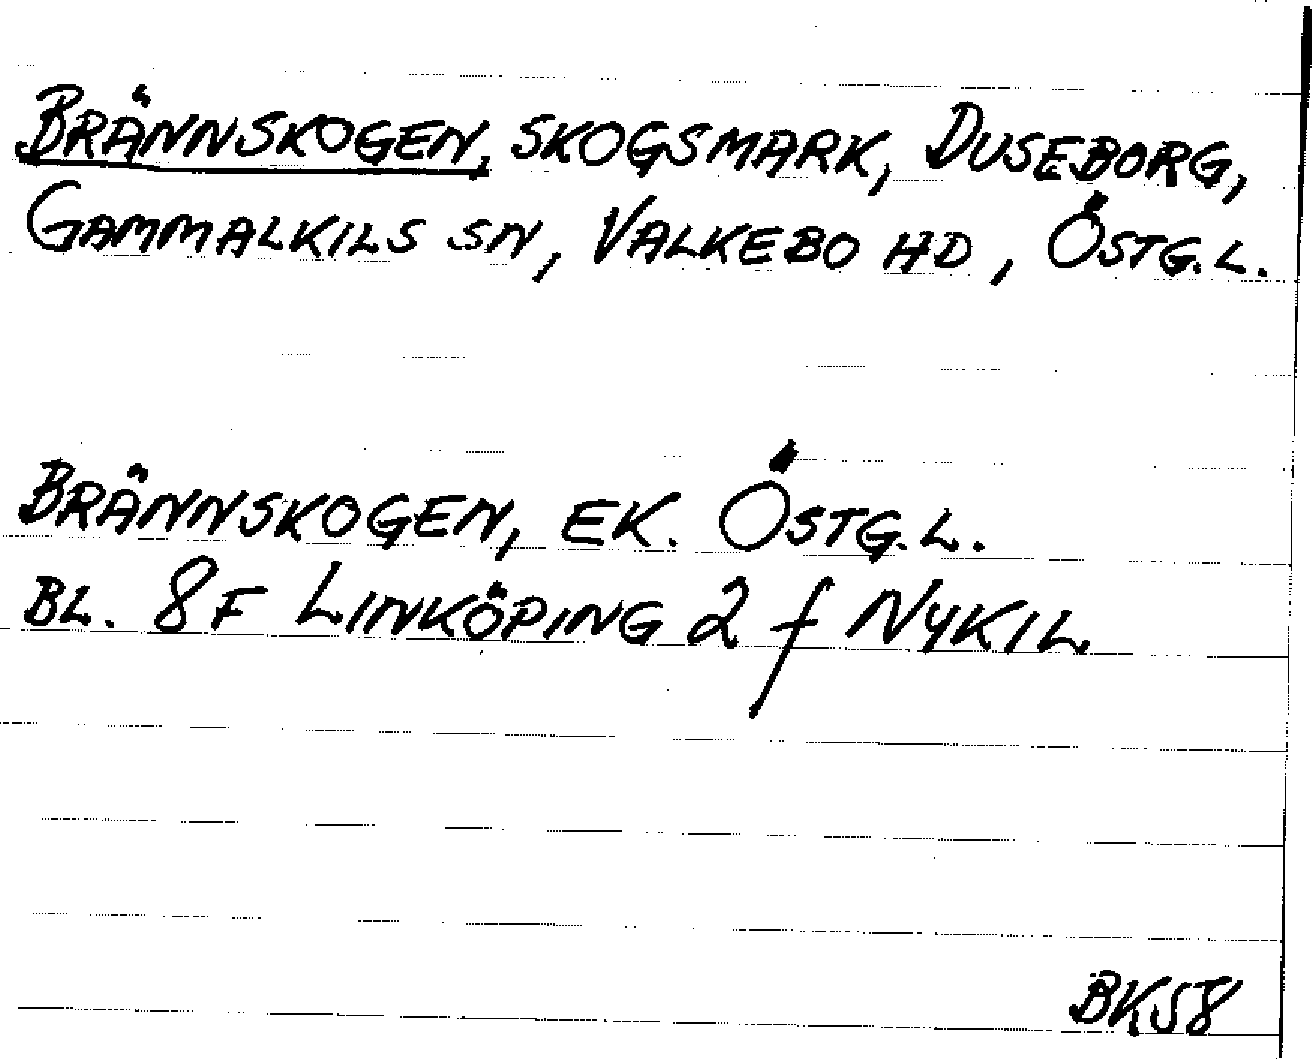 BRÄNNSKOGEN, SKOGSMARK, DUSEBORG,
GAMMALKILS SN, VALKEBO HD, ÖSTG.L.
BRÄNNSKOGEN, EK. ÖSTG.L.
BL. 8F LINKÖPING 2 f NYKIL
BK58